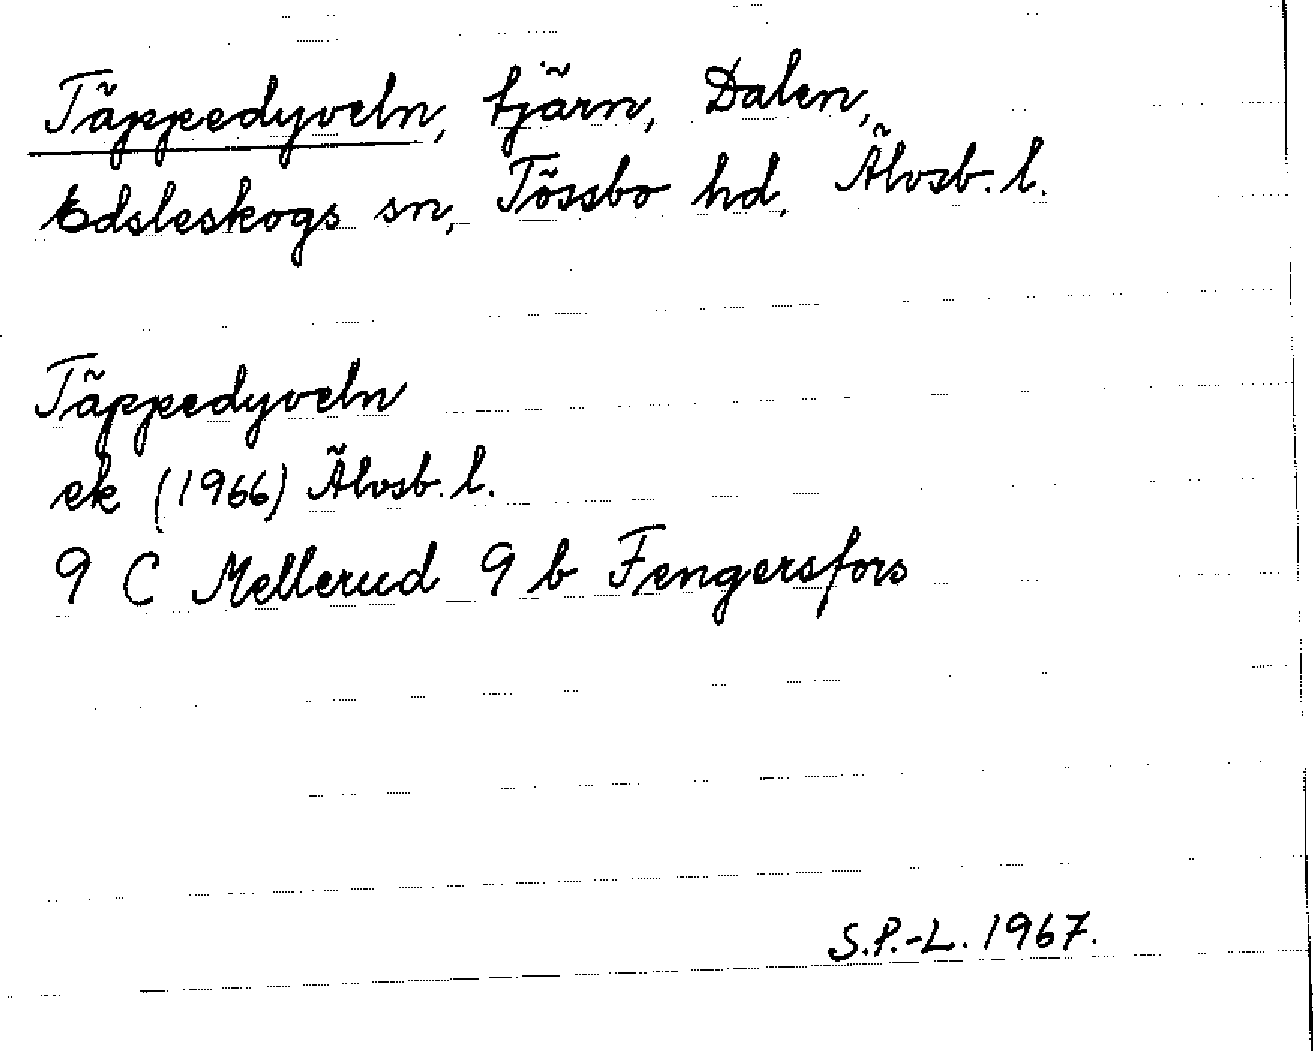 Täppedyveln, tjärn, Dalen,
Edsleskogs sn, Tössbo hd, Älvsb. l.
Täppedyveln
ek (1966) Älvsb. l.
9 C Mellerud 9 b Fengersfors
S.P.-L. 1967.